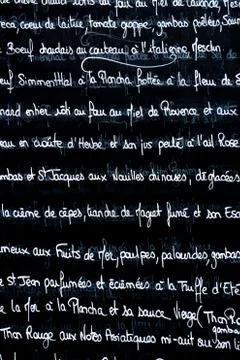 au foin au Miel de Lavande,
coeur de laitue, tomate grappe, gambas poêlées,
Boeuf charolais au couteau à l'italienne, Mesclun
Simmenthal à la Plancha, frottée à la fleur de S
nard entier rôti au four au Miel de Provence et aux
eau en croûte d'Herbe et son jus perlé à l'ail Rose
mbas et St Jacques aux Nouilles chinoises, déglacées
la crème de cèpes, tranche de Magret fumé et son Esca
meux aux Fruits de Mer, poulpes, palourdes, gambas
e St Jean parfumées et écrémées à la Truffe d'Eté
la Mer à la Plancha et sa sauce Vierge (Thon R
gambas
Thon Rouge aux Notes Asiatiques mi-cuit sur son li